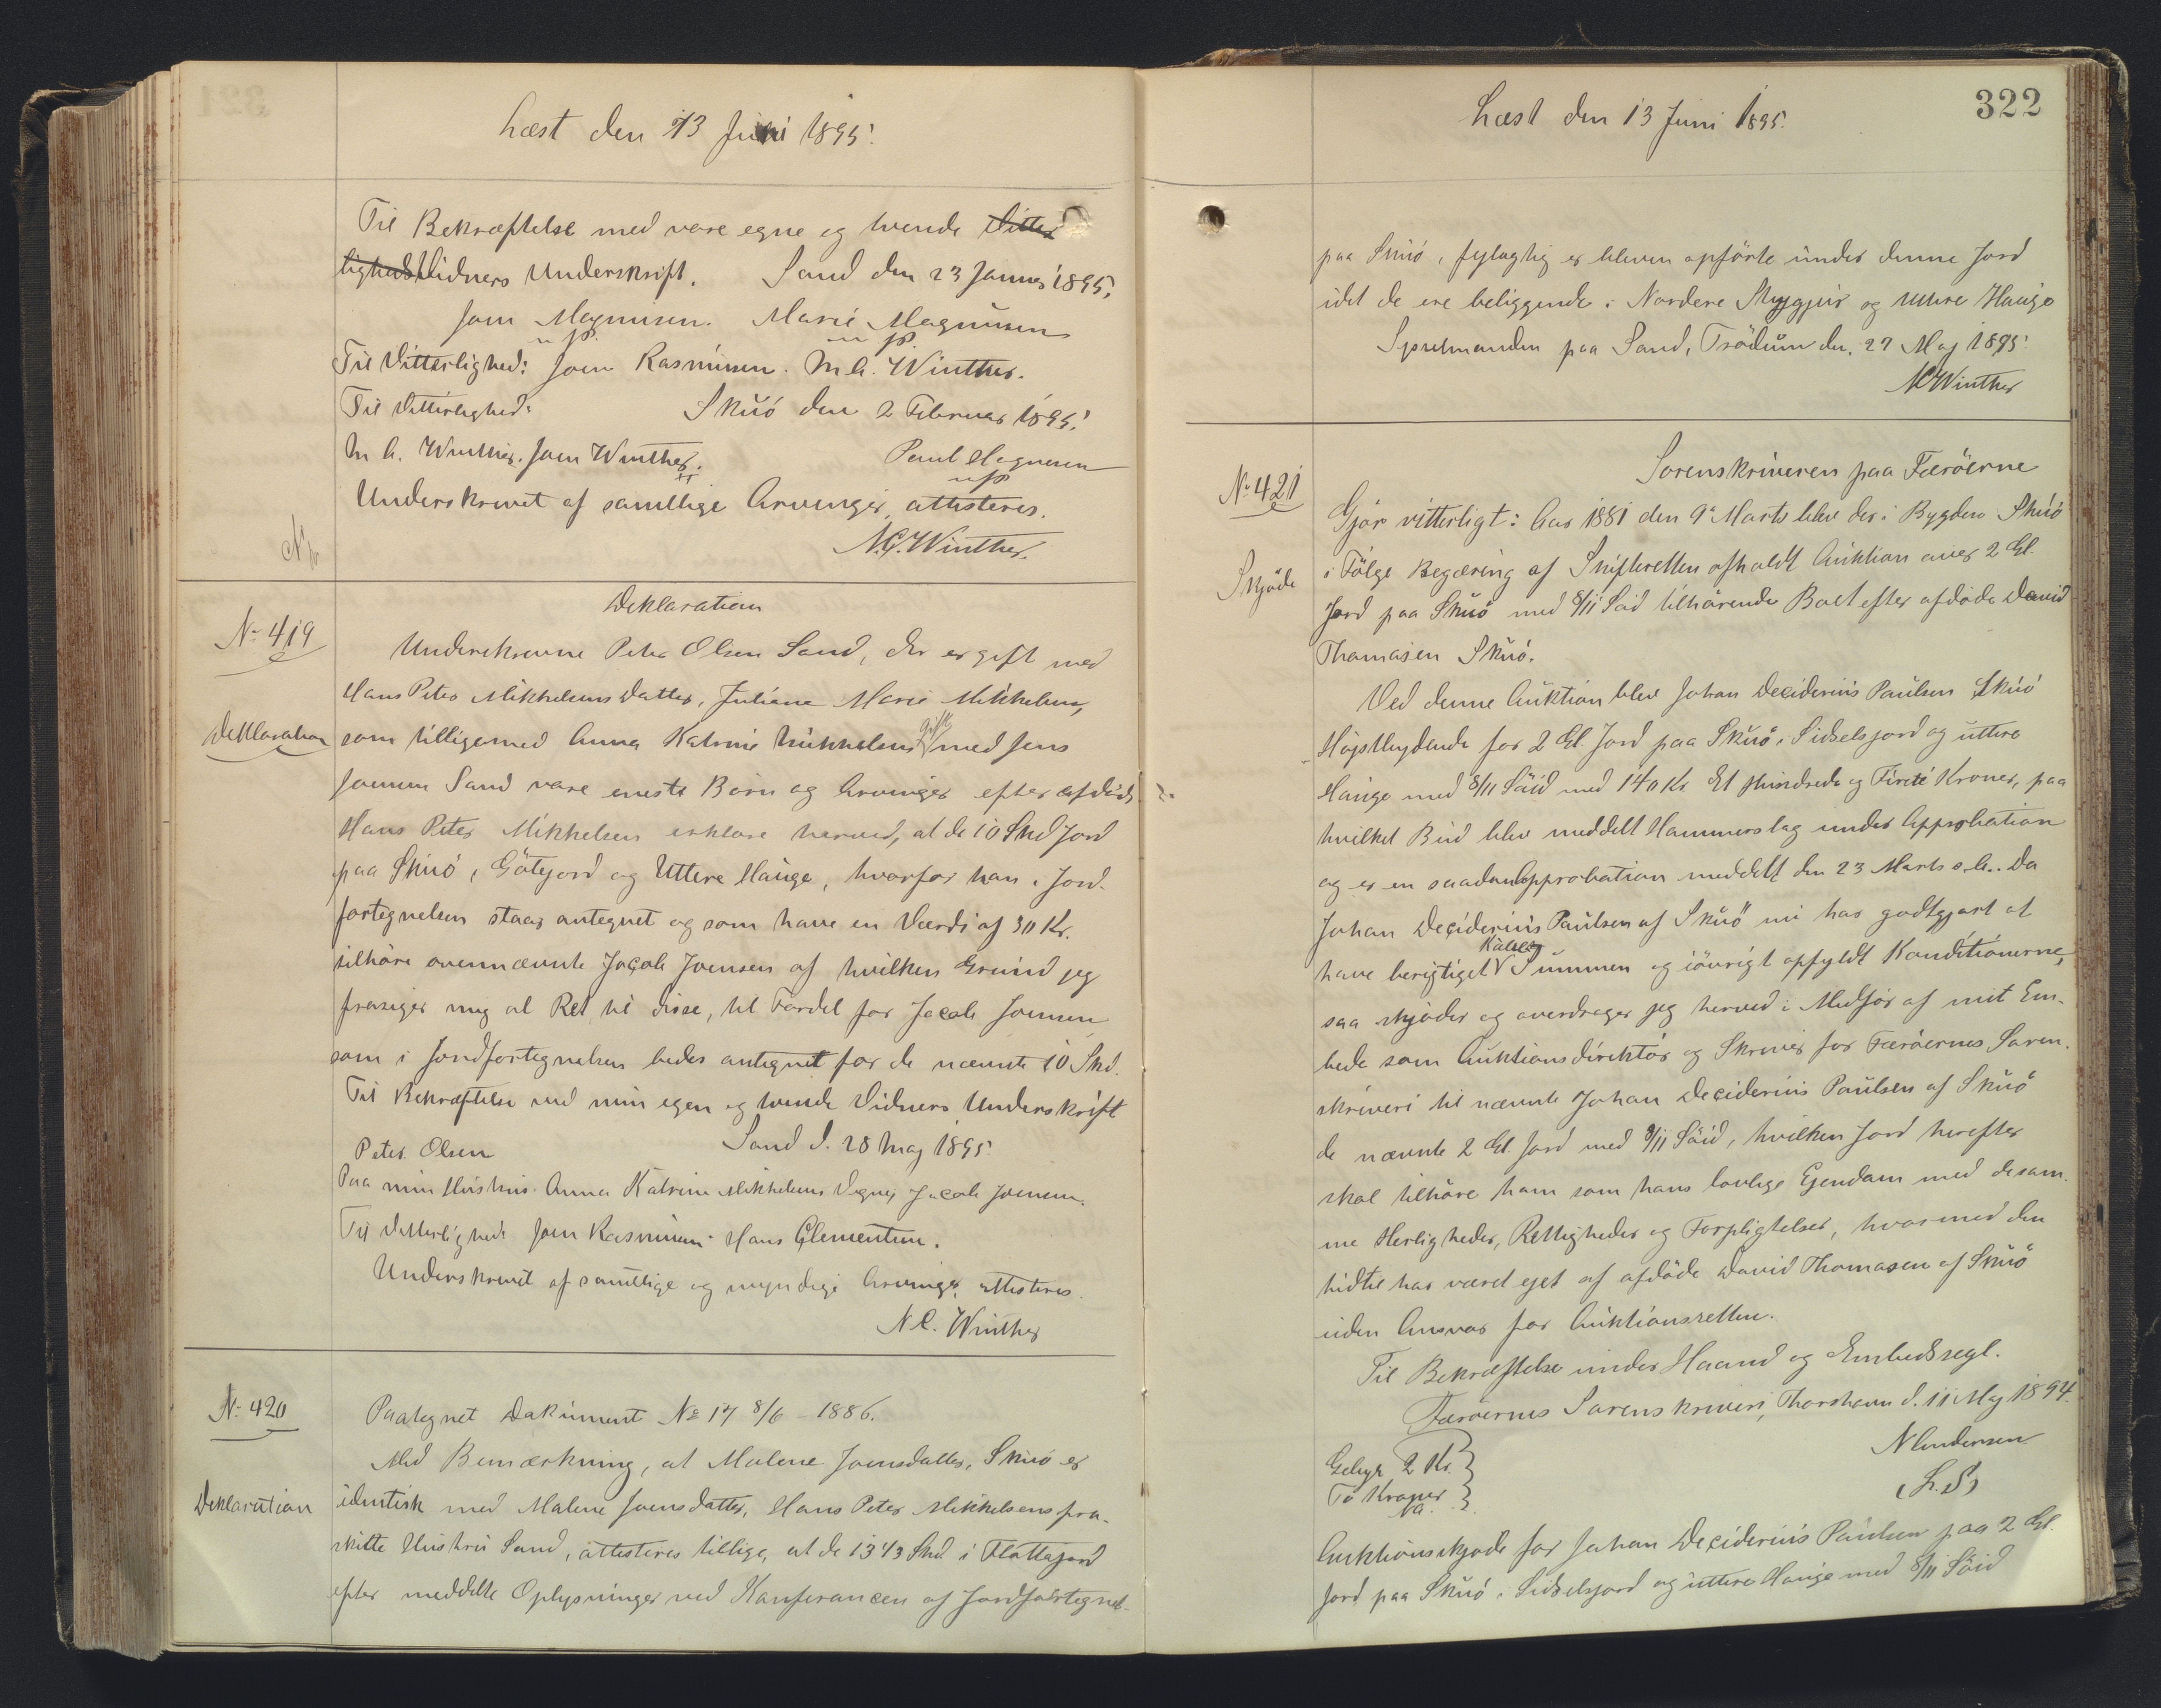 Læst den 13 Juni 1895.
Til Bekræftelse med vore egne og tvende Vitter
lighedsVidners Underskrift. Sand den 23 Januar 1895.
Joen Magnusen. Marie Magnusen
m. f. P. m. f. P.
Til Vitterlighed: Joen Rasmussen. M. A. Winther.
Til Vitterlighed: Skuö den 2 Februar 1895.
M. A. Winther. Joen Winther. Poul Magnusen
m f P
Underskrevet af samtlige Arvinger, attesteres.
N. C. Winther.
Nr
Deklaration
№ 419
Underskrevne Peter Olsen Sand, der er gift med
Hans Peter Mikkelsens Datter, Juliane Marie Mikkelsen,
Deklaration
som tilligemed Anna Katrine Mikkelsen gift med Jens
Joensen Sand vare eneste Börn og Arvinger efter afdöde
Hans Peter Mikkelsen erklære herved, at de 10 Skd Jord
paa Skuö, Götejord og Uttere Hauge, hvorfor han i Jord-
fortegnelsen staar antegnet og som have en Værdi af 30 Kr.
tilhöre ovennævnte Jacob Joensen af hvilken Grund jeg
frasiger mig al Ret til disse, til Fordel for Jacob Joensen
som i Jordfortegnelsen bedes antegnet for de nævnte 10 Skd.
Til Bekræftelse med min egen og tvende Vidners Underskrift
Peter Olsen Sand d. 28 Maj 1895.
Paa min Hustrus Anna Katrine Mikkelsens Vegne, Jacob Joensen.
Til Vitterlighed: Joen Rasmussen Hans Clementsen.
Underskrevet af samtlige og myndige Arvinger, attesteres.
N C. Winther
№ 420
Paategnet Dokument № 17 8/6 - 1886.
Med Bemærkning, at Malene Joensdatter, Skuö er
Deklaration
identisk med Malene Joensdatter, Hans Peter Mikkelsens fra-
skilte Hustru Sand, attesteres tillige, at de 13 1/3 Skd i Flattajord
efter meddelte Oplysninger ved Konferancen af Jordfortegnel-
322
Læst den 13 Juni 1895.
paa Skuö, fejlagtig er bleven opförte under denne Jord
idet de ere beliggende i Nordere Skyggjur og Uttere Hauge
Sysselmanden paa Sand, Trödum den 27 Maj 1895.
N C Winther
Sorenskriveren paa Færöerne
№ 421
Gjör vitterligt: Aar 1881 den 9de Marts blev der i Bygden Skuö
Skjöde
i Fölge Begæring af Skifteretten afholdt Auktion over 2 Gl.
Jord paa Skuö med 8/11 Söid tilhörende Boet efter afdöde David
Thomasen Skuö.
Ved denne Auktion blev Johan Deciderius Paulsen Skuö
Höjstbydende for 2 Gl. Jord paa Skuö, Sidselsjord og uttere
Hauge med 8/11 Söid med 140 Kr. Et Hundrede og Firti Kroner, paa
hvilket Bud blev meddelt Hammerslag under Approbation
og er en saadan Approbation meddelt den 23 Marts s. A.. Da
Johan Deciderius Paulsen af Skuö nu har godtgjort at
Köbe
have berigtiget V Summen og iövrigt opfyldt Konditionerne,
saa skjöder og overdrager jeg herved i Medför af mit Em-
bede som Auktionsdirektör og Skriver for Færöernes Soren-
skriveri til nævnte Johan Deciderius Paulsen af Skuö
de nævnte 2 Gl. Jord med 8/11 Söid, hvilken Jord herefter
skal tilhöre ham som hans lovlige Ejendom med desam-
me Herligheder, Rettigheder og Forpligtelser, hvormed den
hidtil har været ejet af afdöde David Thomasen af Skuö
uden Ansvar for Auktionsretten.
Til Bekræftelse under Haand og Embedssegl.
Færöernes Sorenskriveri, Thorshavn d. 11 Maj 1894.
N Andersen
Gebyr 2 Kr.
(L. S)
To Kroner
NA.
Auktionsskjöde for Johan Deciderius Paulsen paa 2 Gl.
Jord paa Skuö, Sidselsjord og uttere Hauge med 8/11 Söid